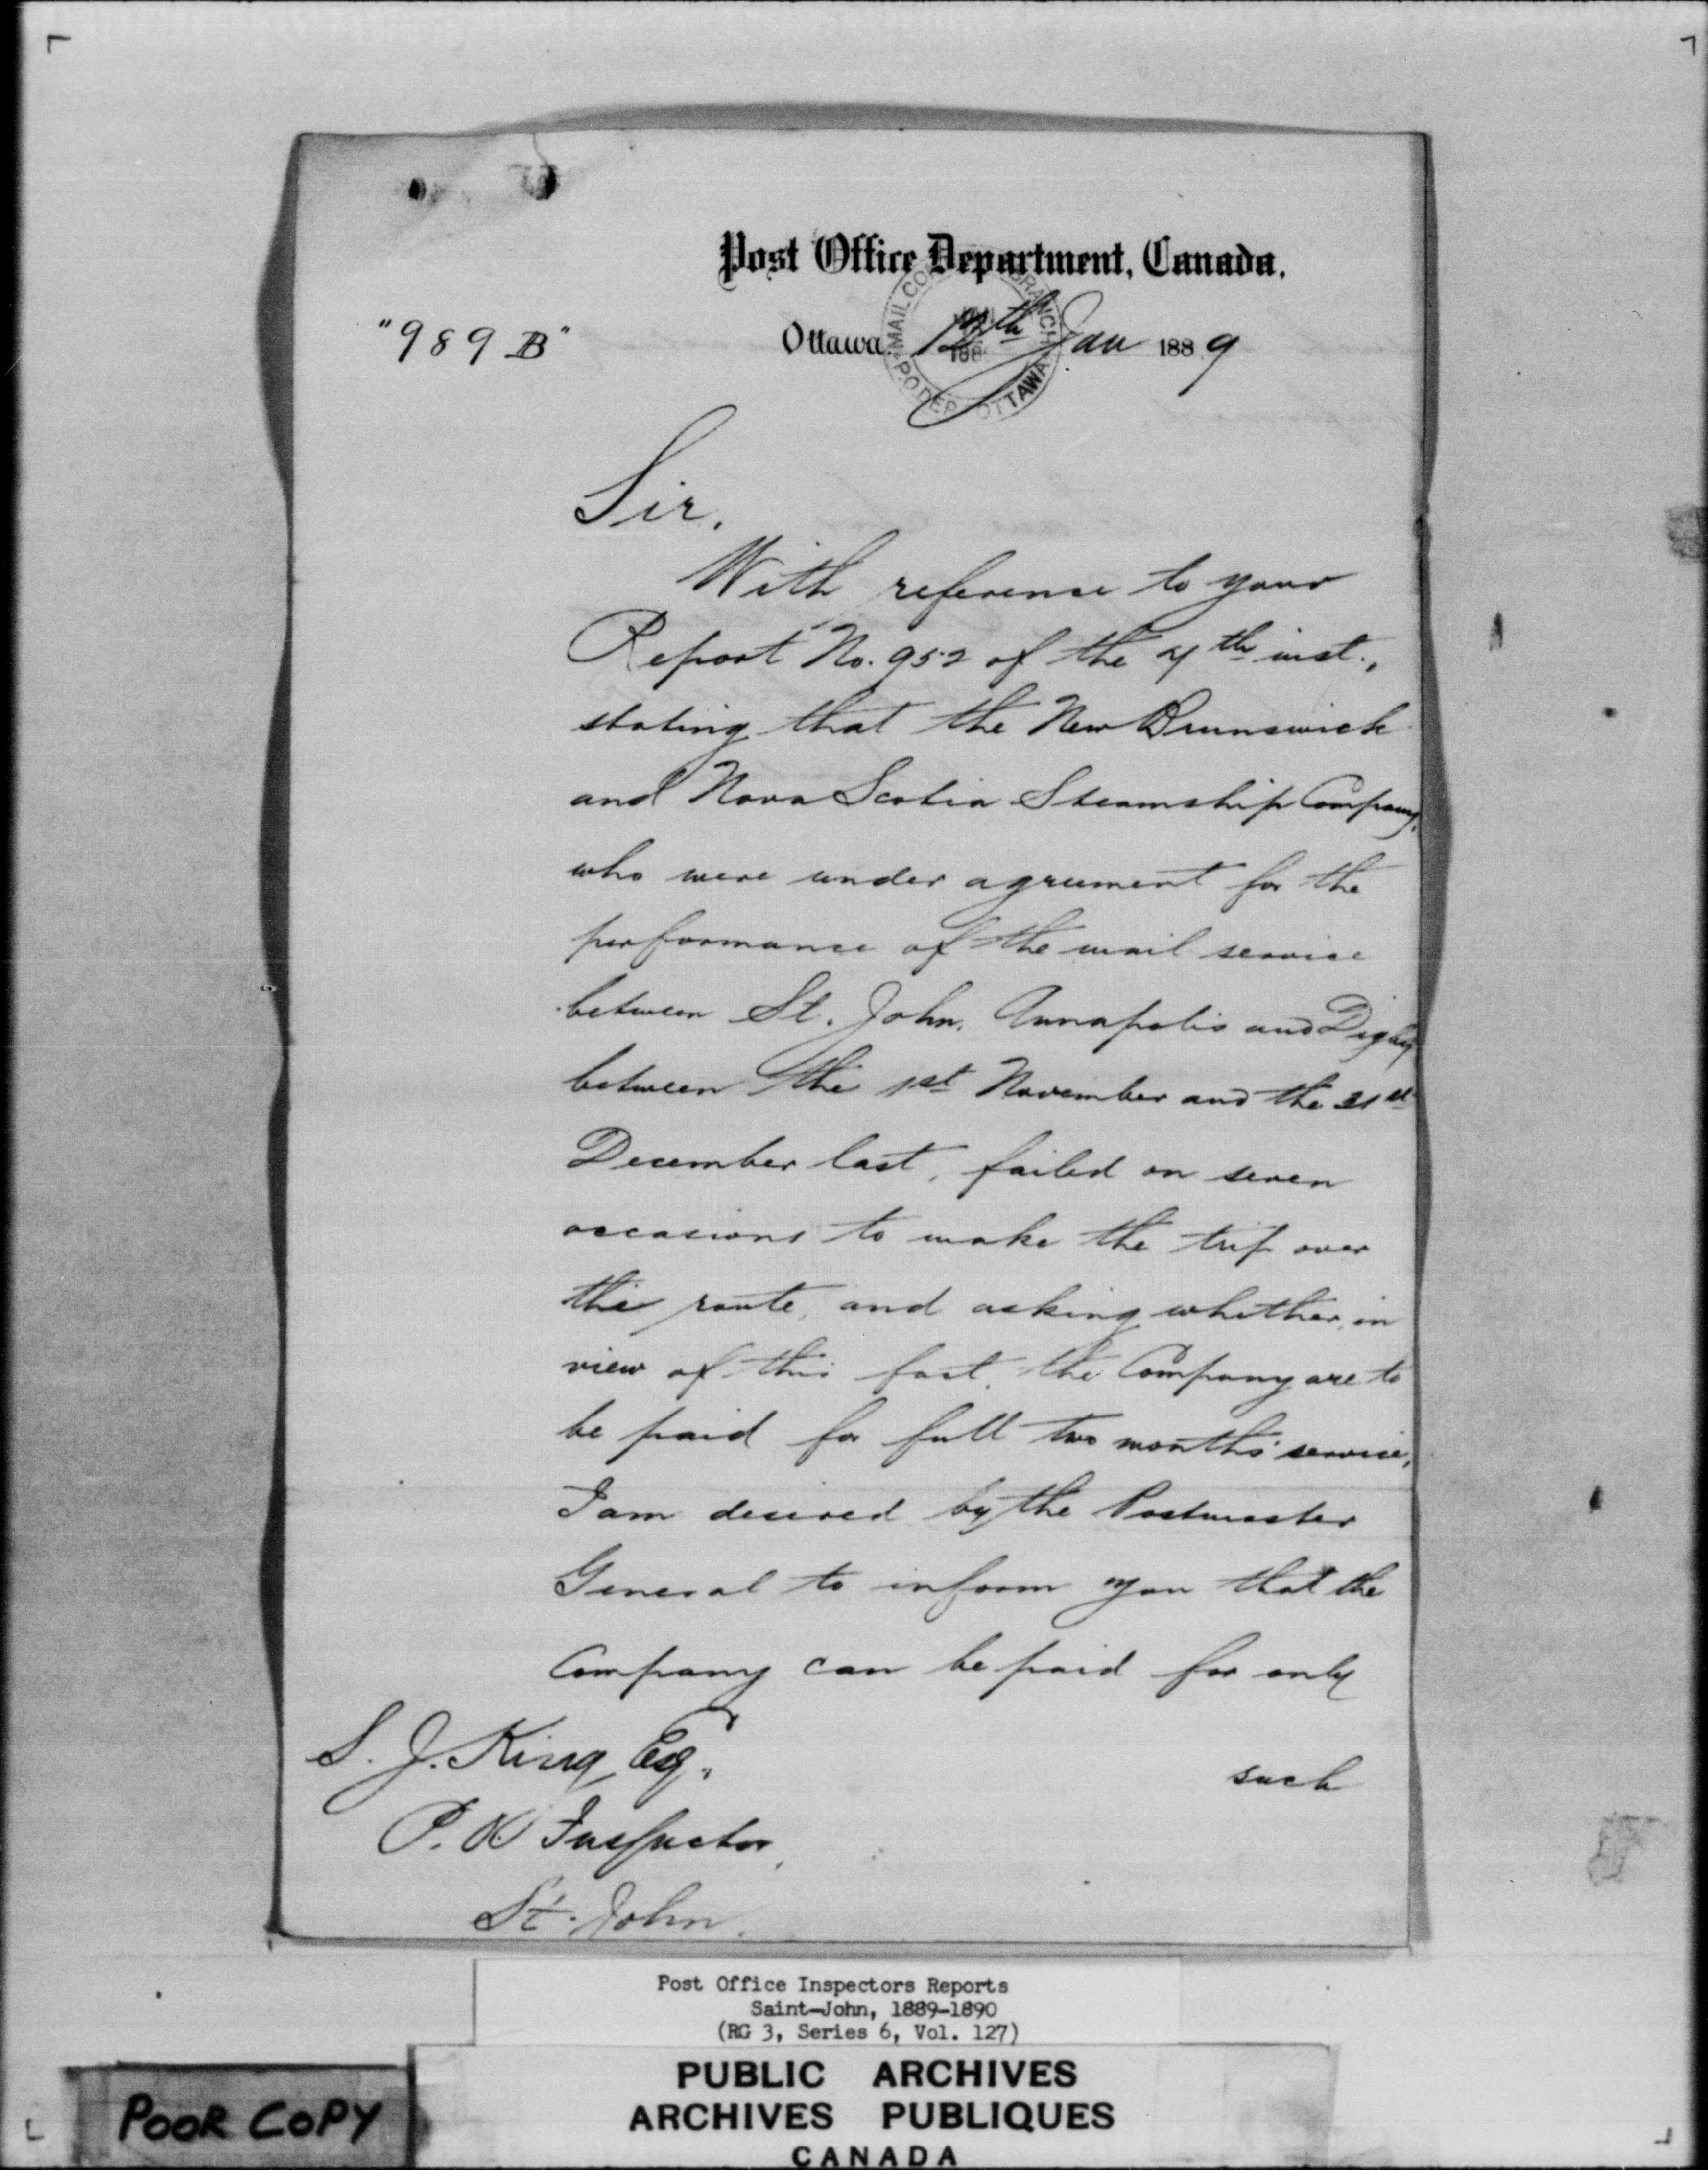 Post Office Department, Canada.
"989 B"
Ottawa 12th Jan 1889
MAIL CO BRANCH
P.O. DEP OTTAWA
Sir,
With reference to your
Report No. 952 of the 4th inst.,
stating that the New Brunswick
and Nova Scotia Steamship Company,
who were under agreement for the
performance of the mail service
between St. John, Annapolis and Digby
between the 1st November and the 31st
December last, failed on seven
occasions to make the trip over
the route, and asking whether, in
view of this fact, the Company are to
be paid for full two months' service,
I am desired by the Postmaster
General to inform you that the
Company can be paid for only
such
S. J. King, Esq.,
P. O. Inspector,
St. John.
Post Office Inspectors Reports
Saint-John, 1889-1890
(RG 3, Series 6, Vol. 127)
PUBLIC ARCHIVES
ARCHIVES PUBLIQUES
CANADA
POOR COPY